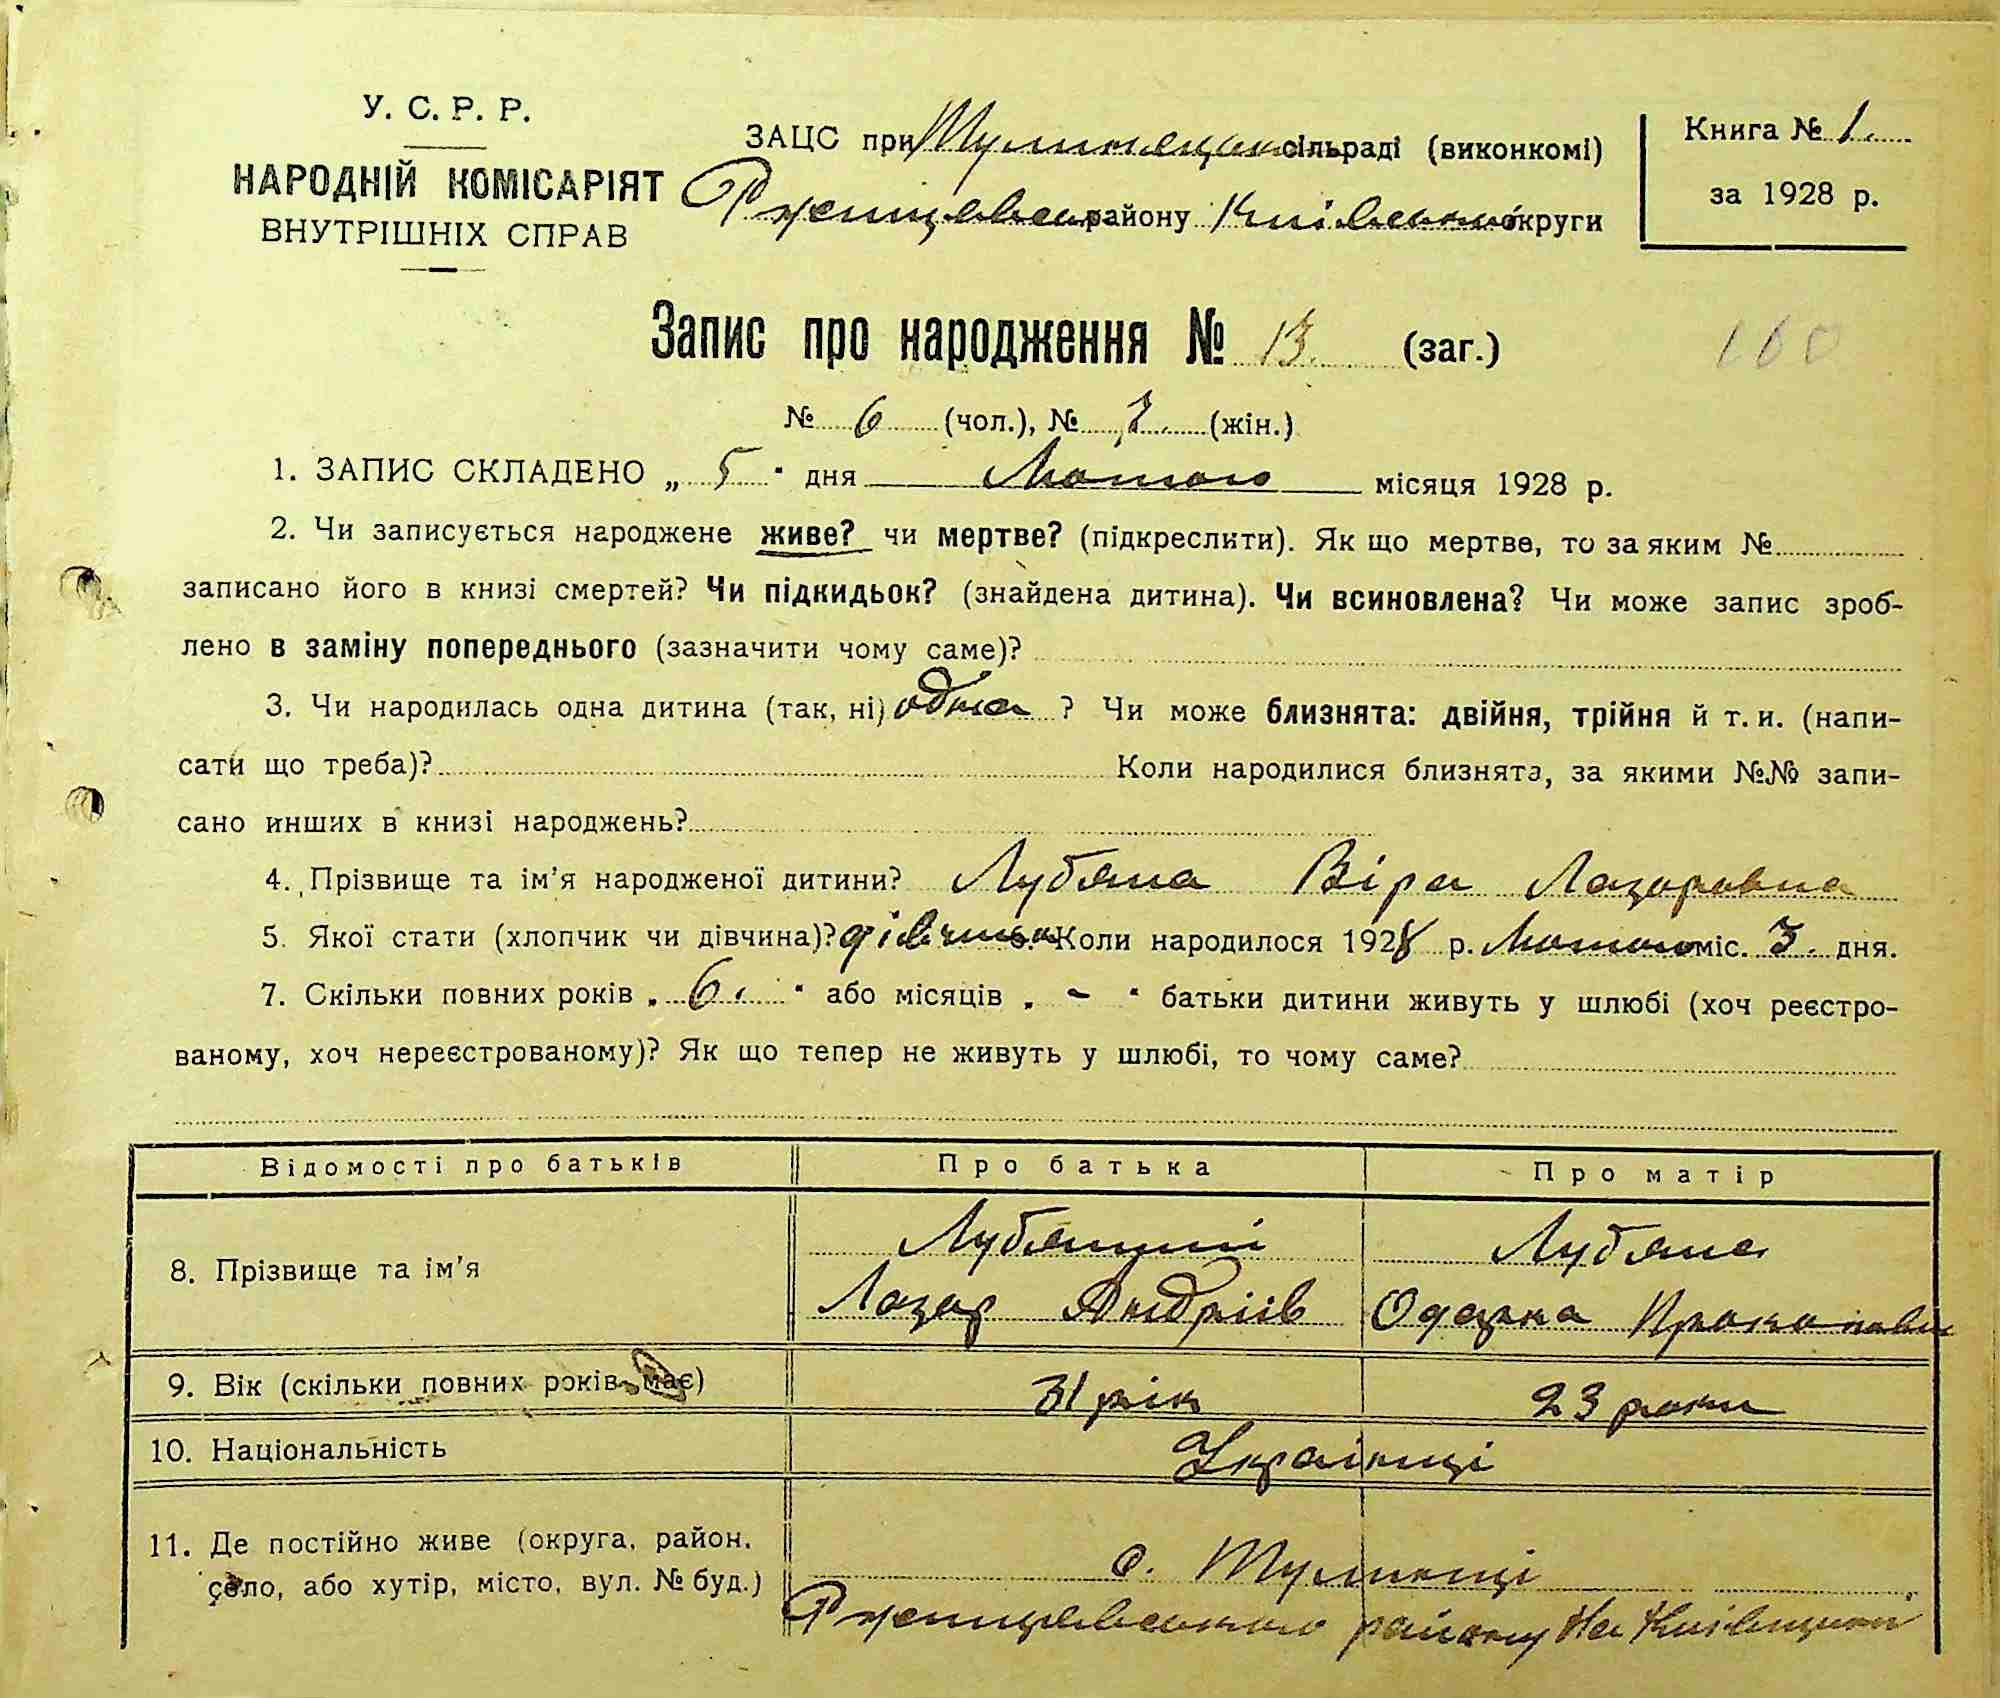 У. С. Р. Р.
НАРОДНІЙ КОМІСАРІЯТ
ВНУТРІШНІХ СПРАВ
ЗАЦС при сільраді (виконкомі)
Ржищевськ району Київської округи
Книга № 1.
за 1928 р.
Запис про народження № 13. (заг.)
160
№ 6 (чол.), № 7. (жін.)
1. ЗАПИС СКЛАДЕНО „ 5 " дня Лютого місяця 1928 р.
2. Чи записується народжене живе? чи мертве? (підкреслити). Як що мертве, то за яким №
записано його в книзі смертей? Чи підкидьок? (знайдена дитина). Чи всиновлена? Чи може запис зроб-
лено в заміну попереднього (зазначити чому саме)?
3. Чи народилась одна дитина (так, ні) одна ? Чи може близнята: двійня, трійня й т. и. (напи-
сати що треба)? Коли народилися близнята, за якими №№ запи-
сано инших в книзі народжень?
4. Прізвище та ім'я народженої дитини? Лубяна Віра Лазоровна
5. Якої стати (хлопчик чи дівчина)? дівчина 6. Коли народилося 1928 р. Лютого міс. 3. дня.
7. Скільки повних років „ 6. " або місяців „ - " батьки дитини живуть у шлюбі (хоч реєстро-
ваному, хоч нереєстрованому)? Як що тепер не живуть у шлюбі, то чому саме?
Відомості про батьків Про батька Про матір
8. Прізвище та ім'я
Лубяний Лубяна
Лазар Андріів Одарка Прокоповн
9. Вік (скільки повних років має) 31 рік 23 роки
10. Національність Українці
11. Де постійно живе (округа, район,
село, або хутір, місто, вул. № буд.)
с. Тулинці
Ржищевського району на Київщині